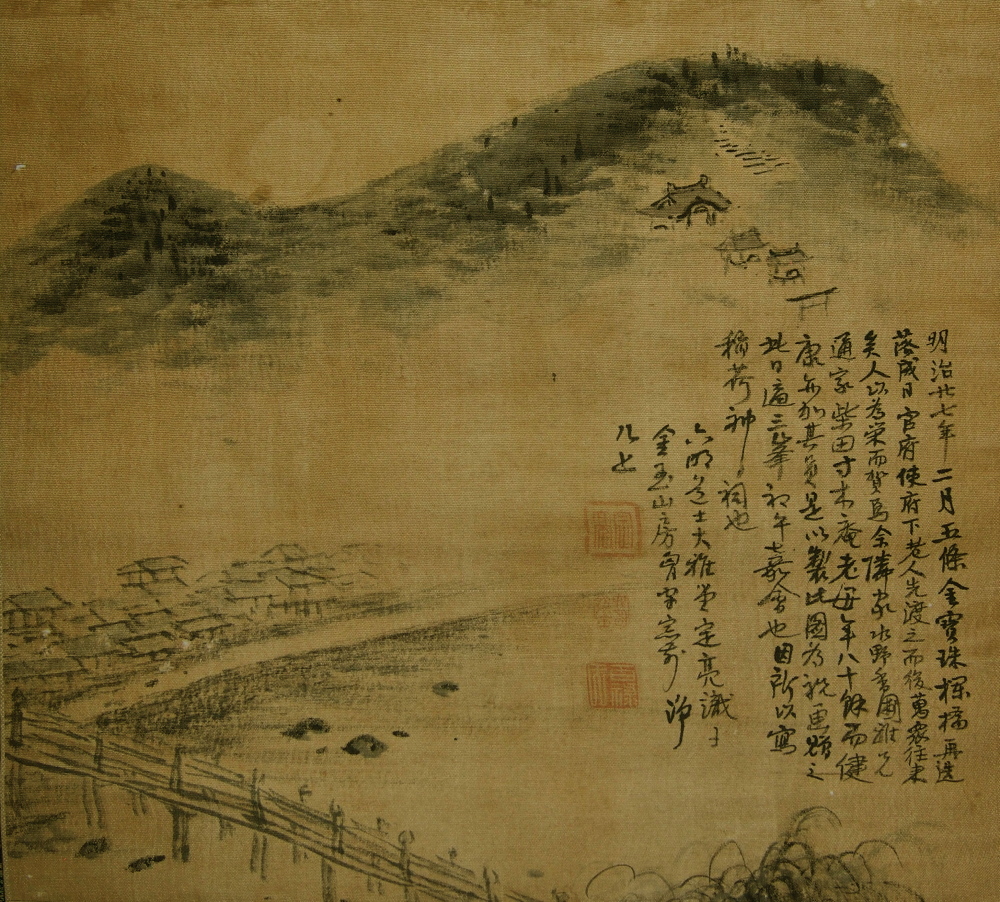 明治廿七年二月五條金寶珠欄橋再造
落成日官府使府下老人先渡之而後萬衆往来
矣人以為榮而賀焉余隣家水野香圃雅兄
通家柴田寸木庵老母年八十餘而健
康亦加其員是以製此圖為祝画題之
此日適三峯初午嘉會也因所以寫
稲荷神祠也
六明道士大雅堂定亮識于
金玉山房
几上